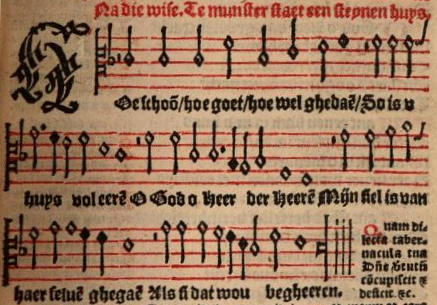 Na die wise. Te munster staet een steynen huys.
Oe schoõ/hoe goet/hoe wel ghedaẽ/So is v
huys vol eerẽ O God o heer der heerẽ Mijn siel is van
haer seluẽ ghegaẽ Als si dat wou begheeren.
Quam di-
lecta taber-
nacula tua
Dñe &c.
deficit. &c.